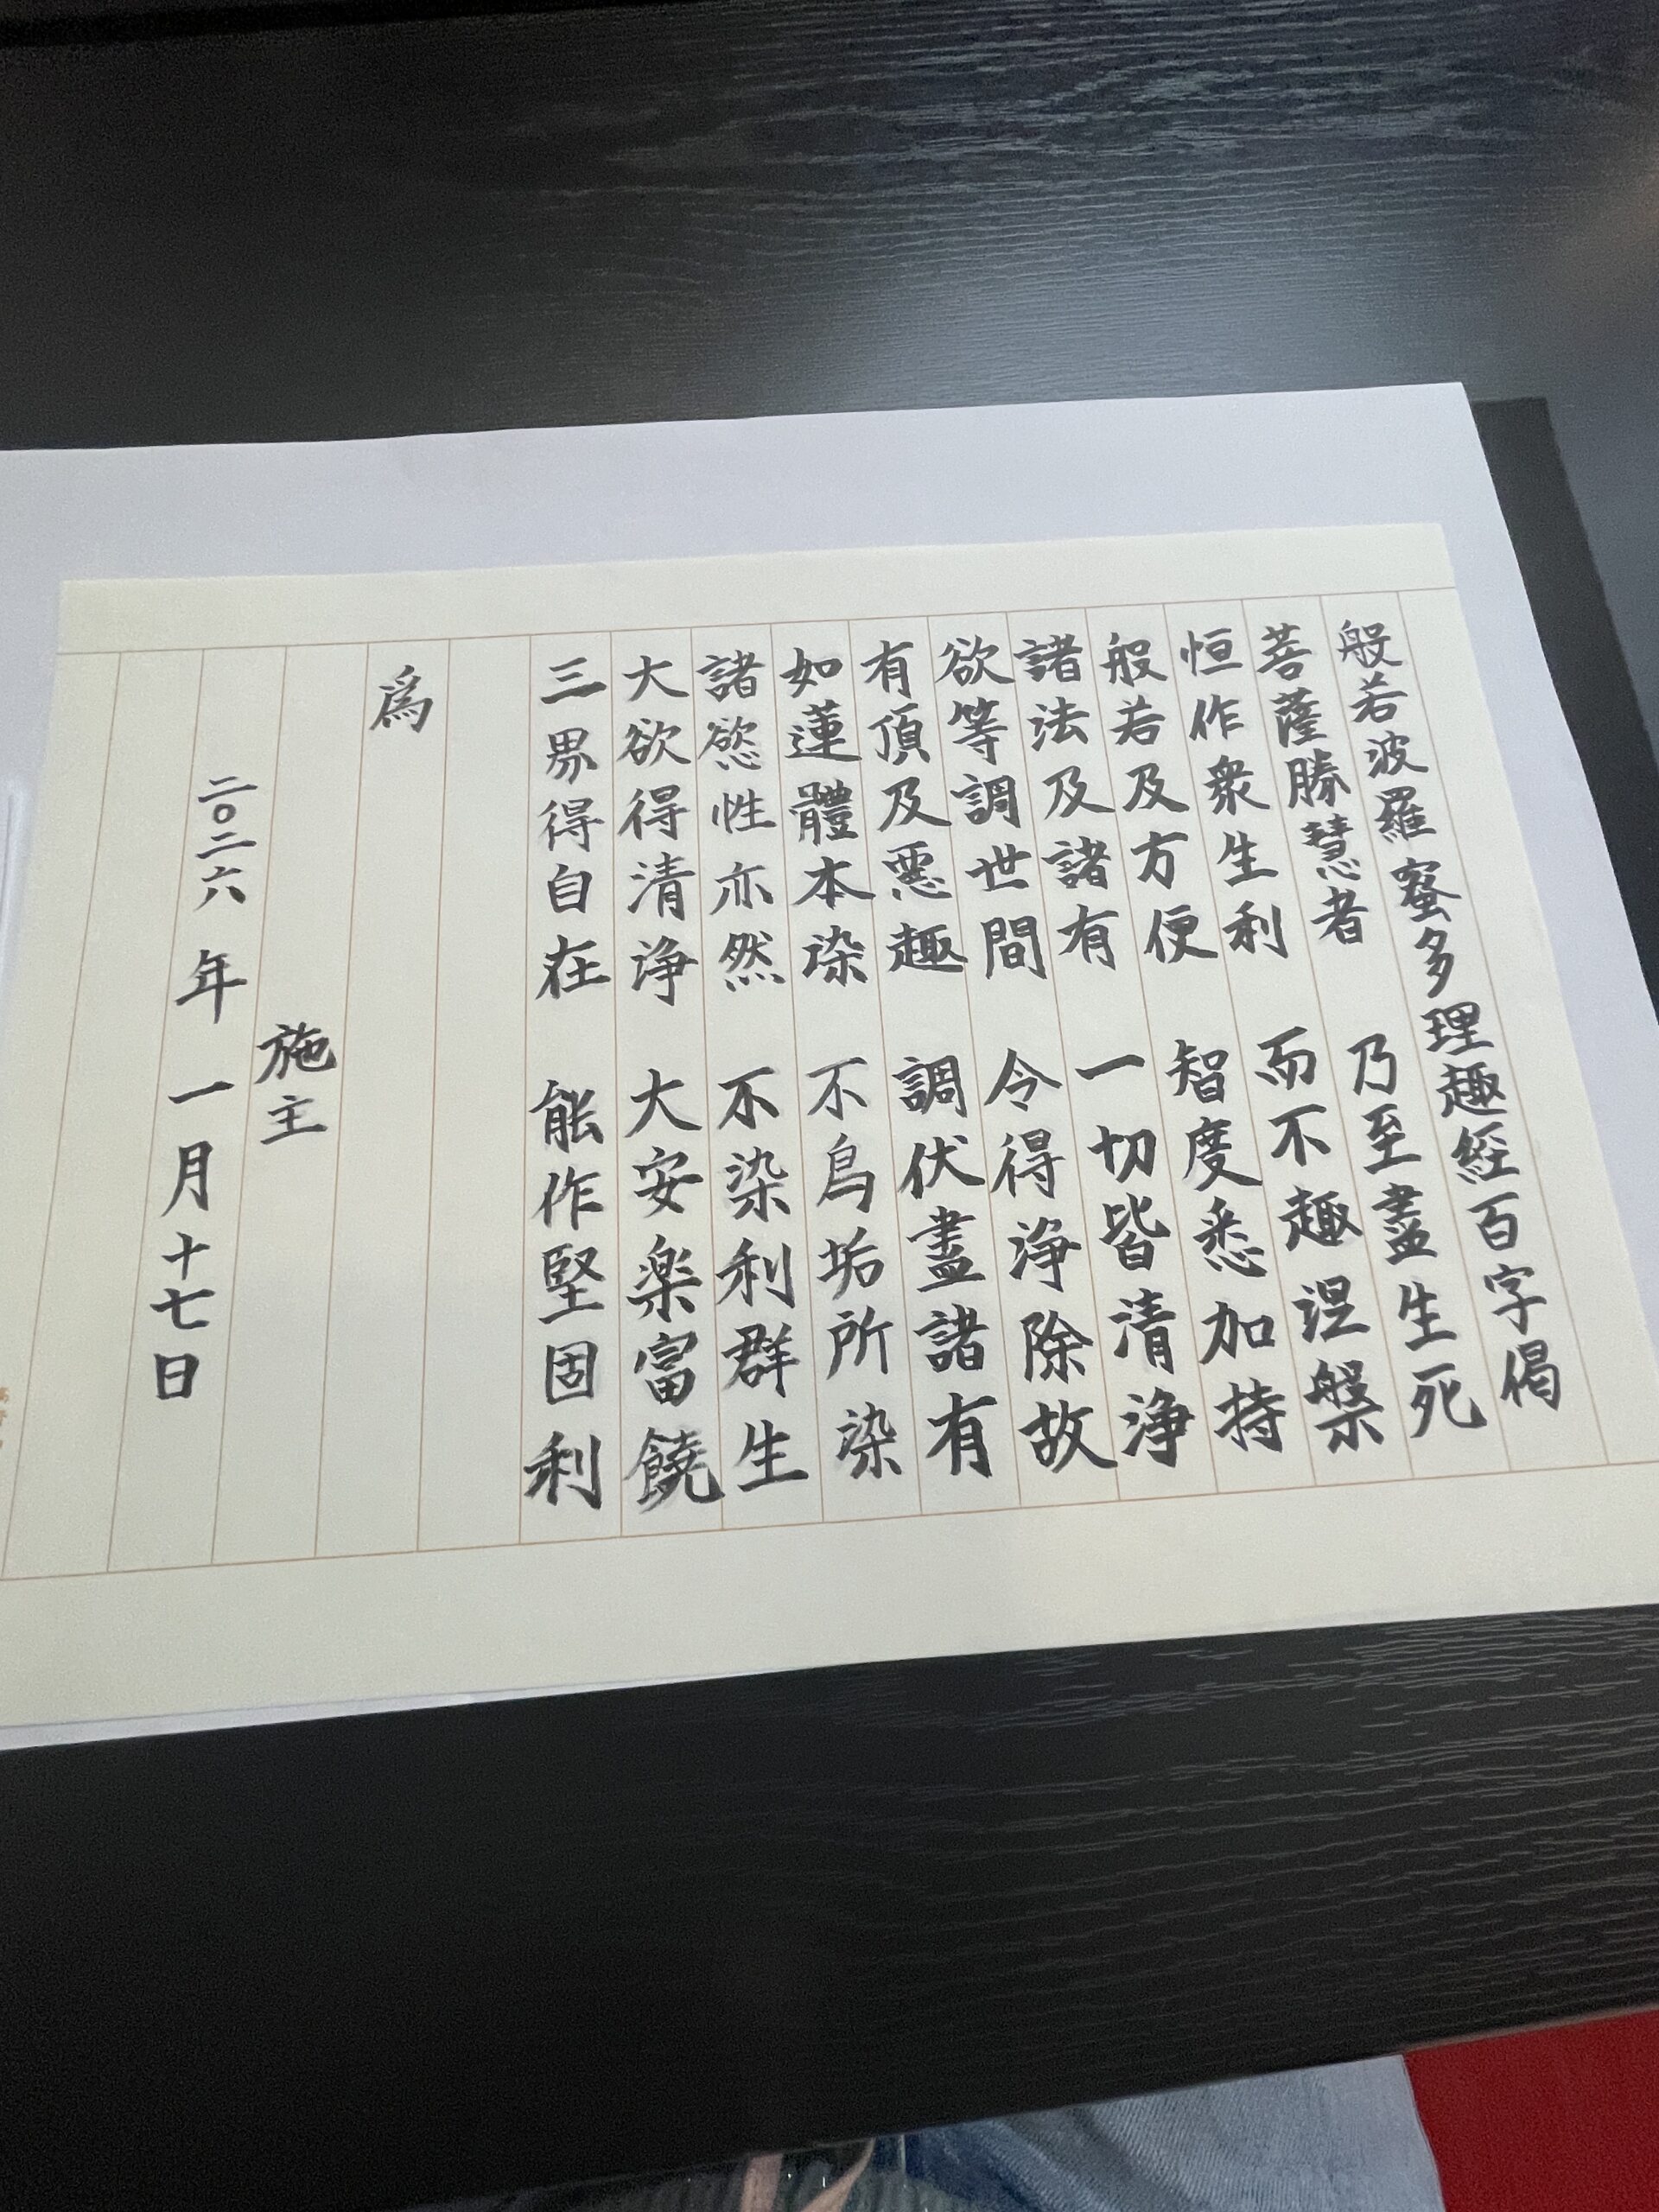 般若波羅蜜多理趣経百字偈
菩薩勝慧者 乃至盡生死
恒作衆生利 而不趣涅槃
般若及方便 智度悉加持
諸法及諸有 一切皆清浄
欲等調世間 令得浄除故
有頂及惡趣 調伏盡諸有
如蓮體本染 不為垢所染
諸慾性亦然 不染利群生
大欲得清浄 大安楽富饒
三界得自在 能作堅固利
爲
施主
二〇二六年 一月十七日